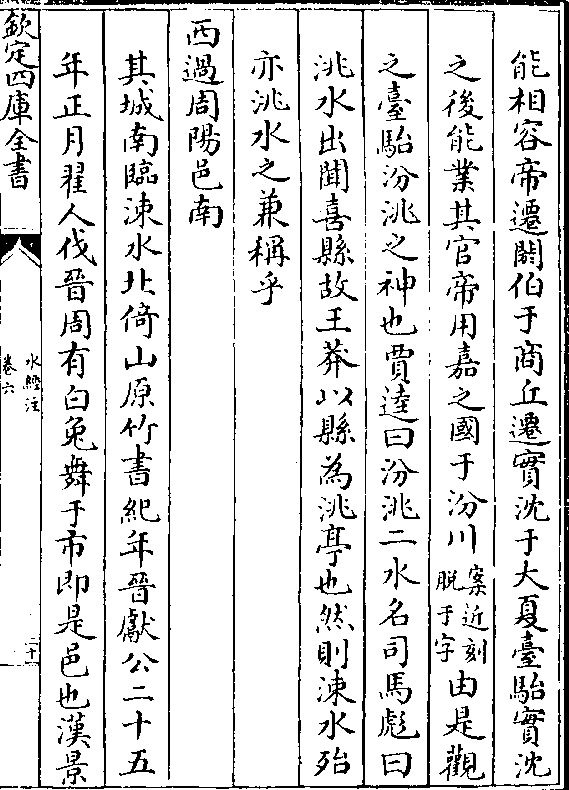 能相容帝遷閼伯于商丘遷實沈于大夏臺駘實沈
之後能業其官帝用嘉之國于汾川案近刻脫于字由是觀
之臺駘汾洮之神也賈逵曰汾洮二水名司馬彪曰
洮水出聞喜縣故王莽以縣為洮亭也然則涑水殆
亦洮水之兼稱乎
西過周陽邑南
其城南臨涑水北倚山原竹書紀年晉獻公二十五
年正月翟人伐晉周有白兔舞于市即是邑也漢景
欽定四庫全書
水經注
卷六